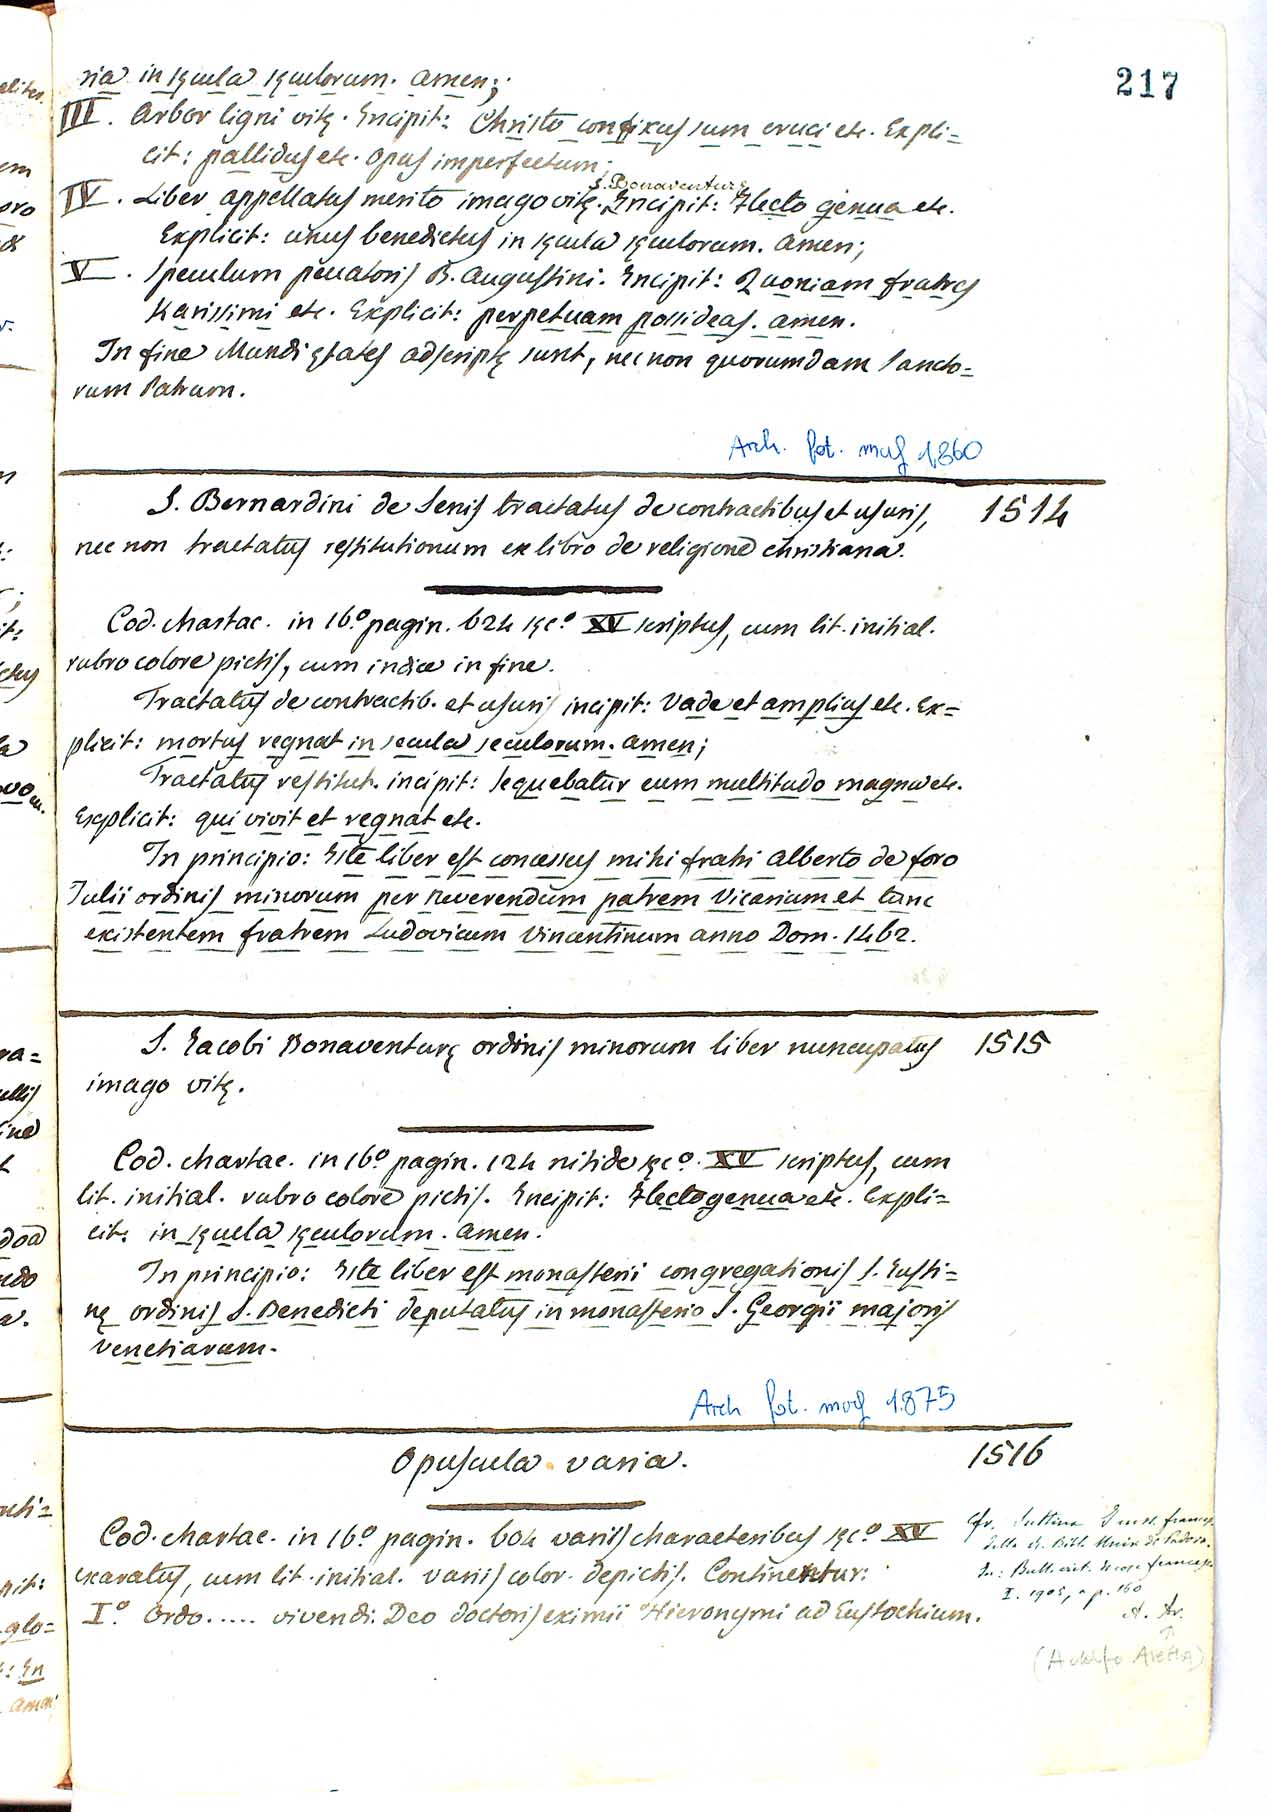 217
ria in sęcula sęculorum. Amen;
III. Arbor ligni vitę. Incipit: Christo confixus sum cruci etc. Expli=
cit: pallidus etc. Opus imperfectum;
S. Bonaventurę
IV. Liber appellatus merito imago vitę. Incipit: Flecto genua etc.
Explicit: unus benedictus in sęcula sęculorum. Amen;
V. Speculum peccatoris B. Augustini. Incipit: Quoniam fratres
Karissimi etc. Explicit: perpetuam possideas. Amen.
In fine Mundi ętates adscriptę sunt, nec non quorumdam Sancto=
rum Patrum.
Arch. fot. mag 1860
S. Bernardini de Senis tractatus de contractibus et usuris, 1514
nec non tractatus restitutionum ex libro de religione christiana.
Cod. chartac. in 16.º pagin. 624 sęc.º XV scriptus, cum lit. initial.
rubro colore pictis, cum indice in fine.
Tractatus de contractib. et usuris incipit: Vade et amplius etc. Ex=
plicit: mortus regnat in secula seculorum. Amen;
Tractatus restitut. incipit: Sequebatur eum multitudo magna etc.
Explicit: qui vivit et regnat etc.
In principio: Iste liber est concessus mihi fratri Alberto de foro
Iulii ordinis minorum per Reverendum patrem Vicarium et tunc
existentem fratrem Ludovicum Vincentinum anno Dom. 1462.
S. Iacobi Bonaventurę ordinis minorum liber nuncupatus 1515
imago vitę.
Cod. chartac. in 16.º pagin. 124 nitide sęc.º XV scriptus, cum
lit. initial. rubro colore pictis. Incipit: Flecto genua etc. Expli=
cit: in sęcula sęculorum. Amen.
In principio: Iste liber est monasterii congregationis S. Iusti=
nę ordinis S. Benedicti deputatus in monasterio S. Georgii majoris
Venetiarum.
Arch fot. mag 1875
Opuscula varia. 1516
Cod. chartac. in 16.º pagin. 604 variis characteribus sęc.º XV
exaratus, cum lit. initial. variis color. depictis. Continentur:
I.º Ordo ..... vivendi Deo doctoris eximii Hieronymi ad Eustochium.
Cfr. I mss. francesc.
della R. Bibl. Univ. di Padova.
In: Bull. crit. di cose francesc.
I. 1905, a p. 160
A. Ar.